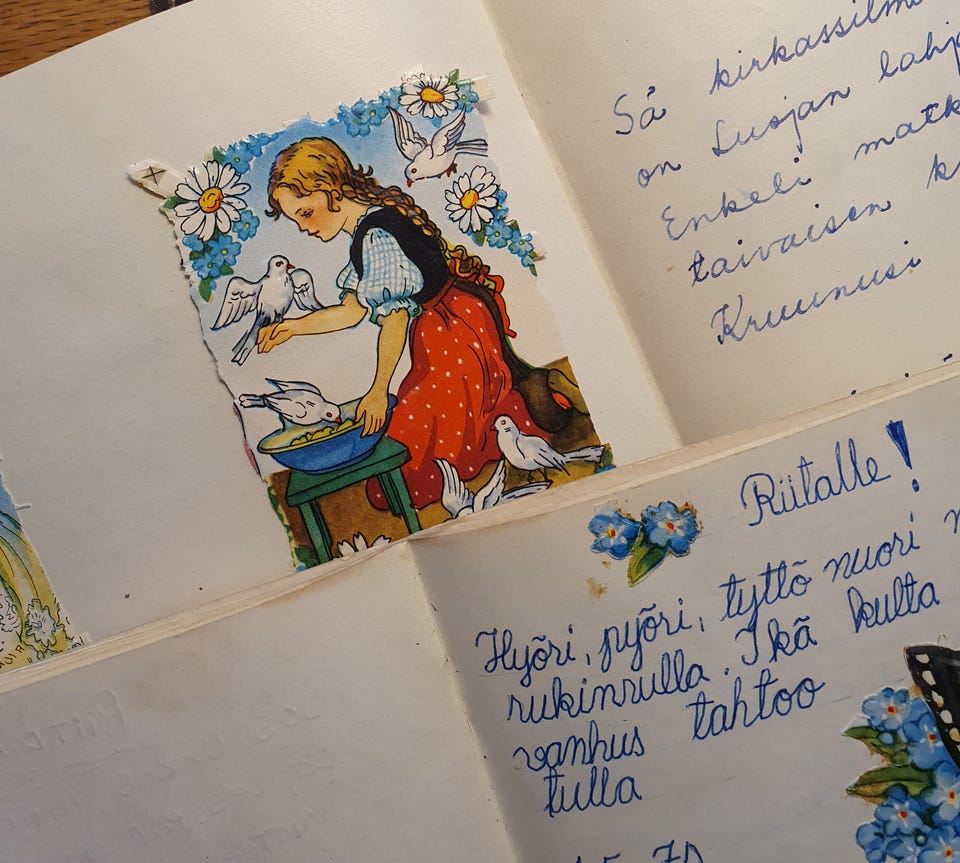 Sä kirkassilmä
on Luojan lahja
Enkeli matk
taivaisen k
Kruunusi
Riitalle!
Hyõri, pyõri, tyttõ nuori
rukinrulla. Ikã kulta
vanhus tahtoo
tulla